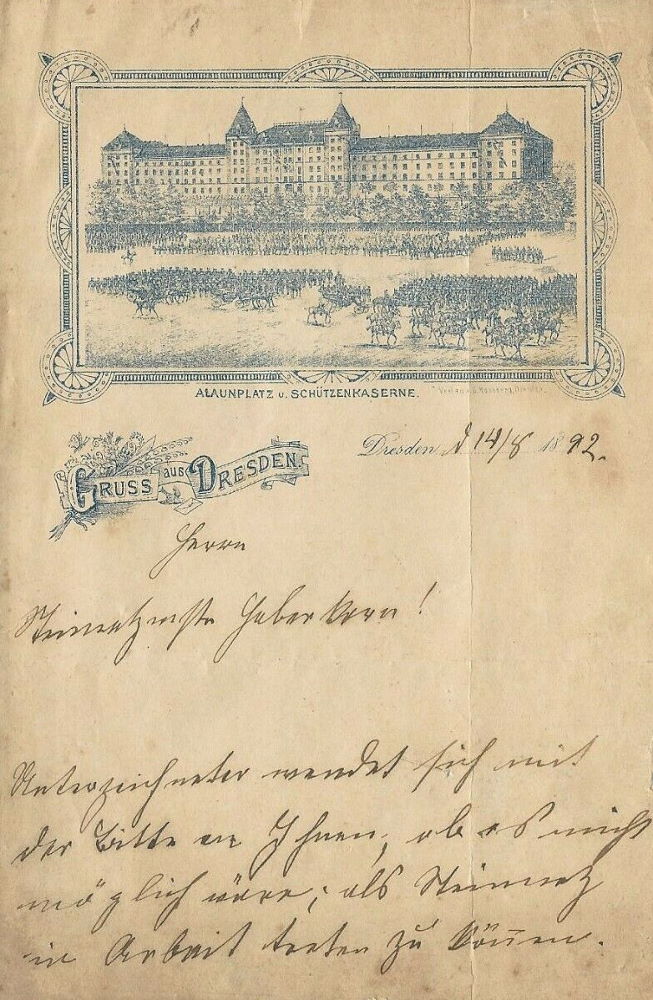 ALAUNPLATZ u. SCHÜTZENKASERNE.
GRUSS aus DRESDEN.
Dresden, d 14/8 1892.
Herrn
Steinmetzmstr Haberkorn!
Unterzeichneter wendet sich mit
der Bitte an Ihnen, ob es nicht
möglich wäre, als Steinmetz
in Arbeit treten zu können.